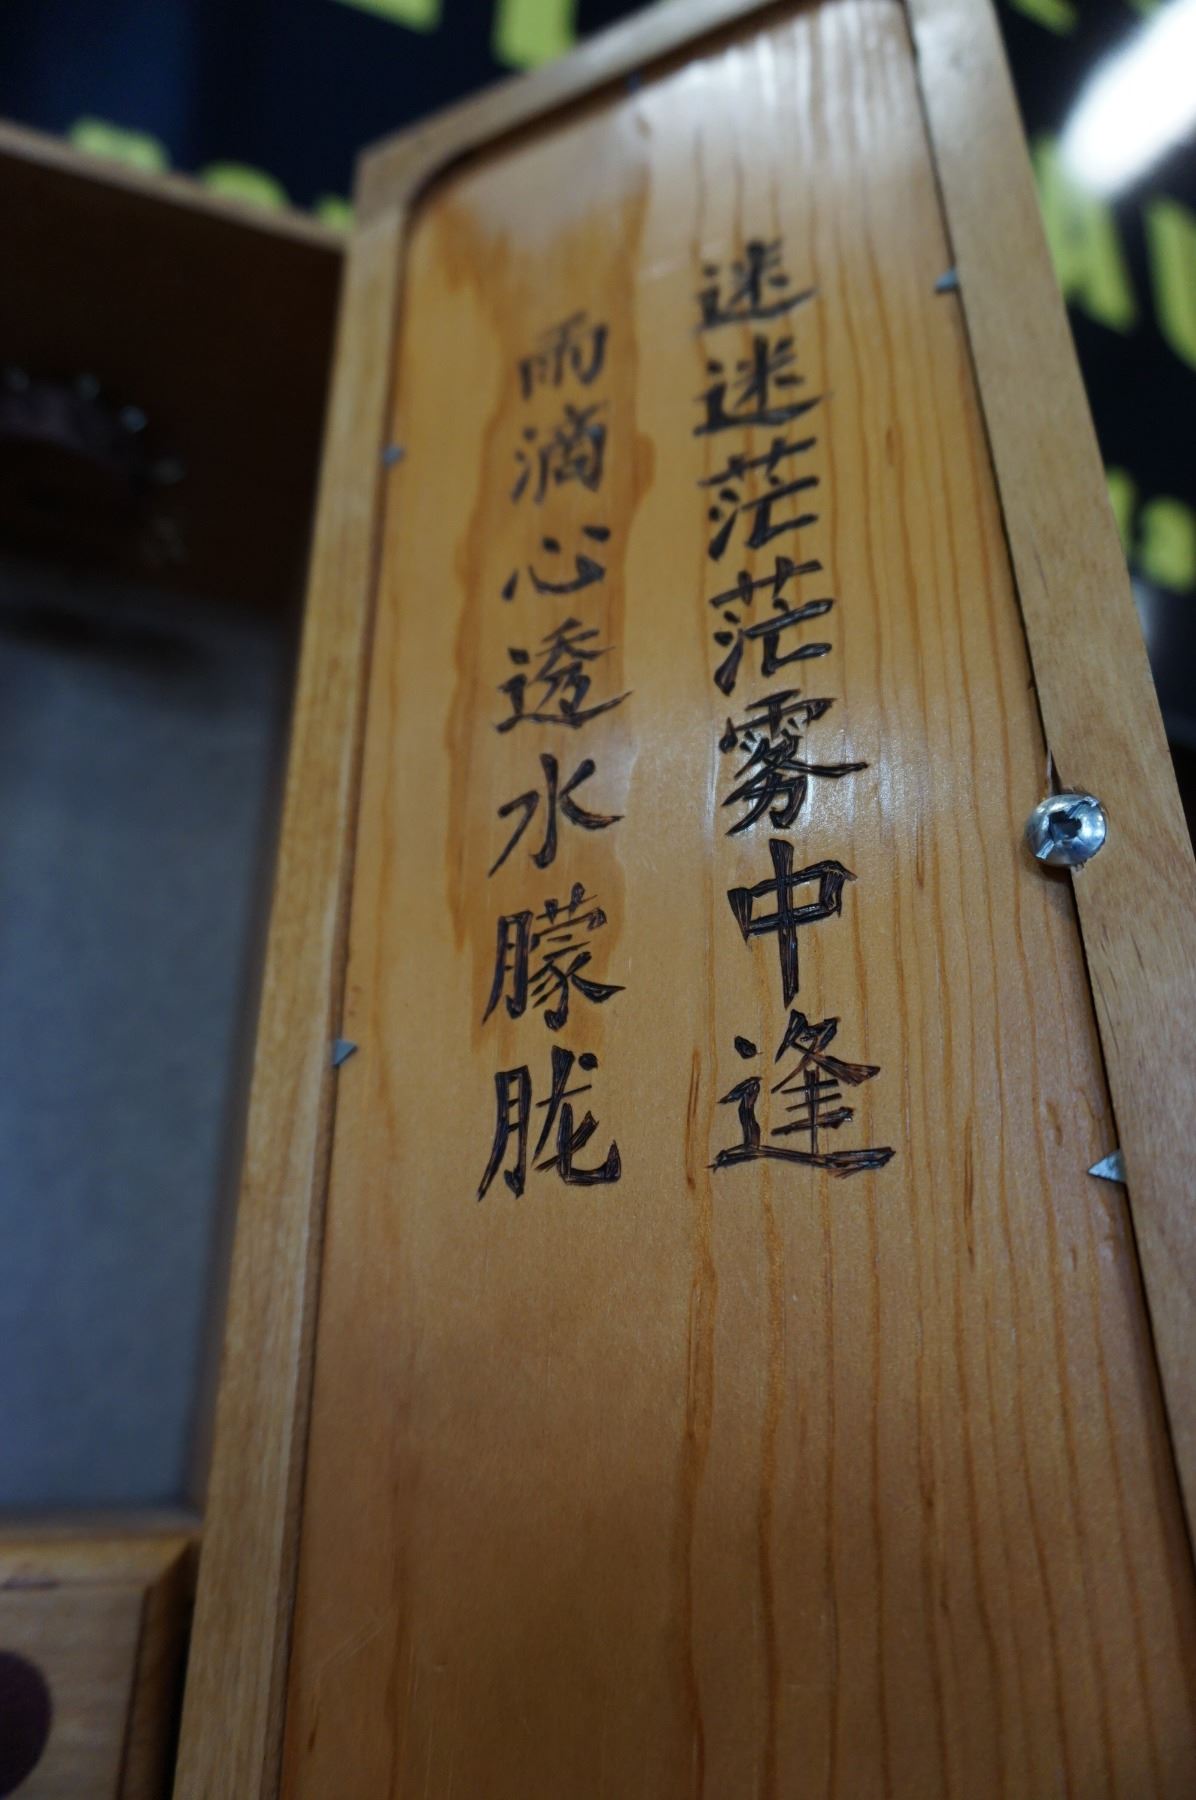 迷迷茫茫雾中逢
雨滴心透水朦胧